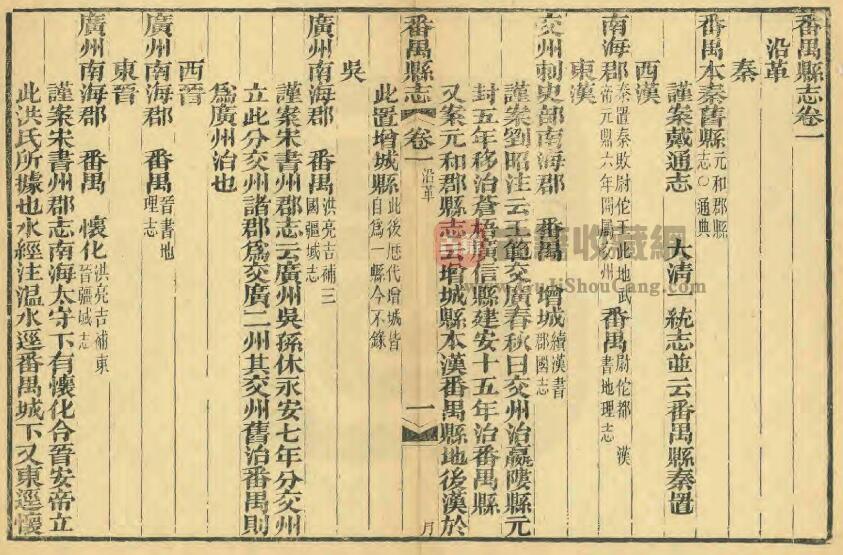 番禺縣志卷一
沿革
秦
番禺本秦舊縣元和郡縣志○通典
謹案戴通志　大清一統志並云番禺縣秦置
西漢
南海郡秦置秦敗尉佗王此地武帝元鼎六年開屬交州　番禺尉佗都　漢書地理志
東漢
交州刺史部南海郡　番禺　增城續漢書郡國志
謹案劉昭注云王範交廣春秋曰交州治羸𨻻縣元
封五年移治蒼梧廣信縣建安十五年治番禺縣
又案元和郡縣志云增城縣本漢番禺縣地後漢於
番禺縣志　卷一　沿革　一
此置增城縣此後歷代增城皆自爲一縣今不錄
吳
廣州南海郡　番禺洪亮吉補三國疆域志
謹案宋書州郡志云廣州吳孫休永安七年分交州
立此分交州諸郡爲交廣二州其交州舊治番禺則
爲廣州治也
西晉
廣州南海郡　番禺晉書地理志
東晉
廣州南海郡　番禺　懷化洪亮吉補東晉疆域志
謹案宋書州郡志南海太守下有懷化令晉安帝立
此洪氏所據也水經注溫水逕番禺城下又東逕懷
收藏網
www.GuJiShouCang.com